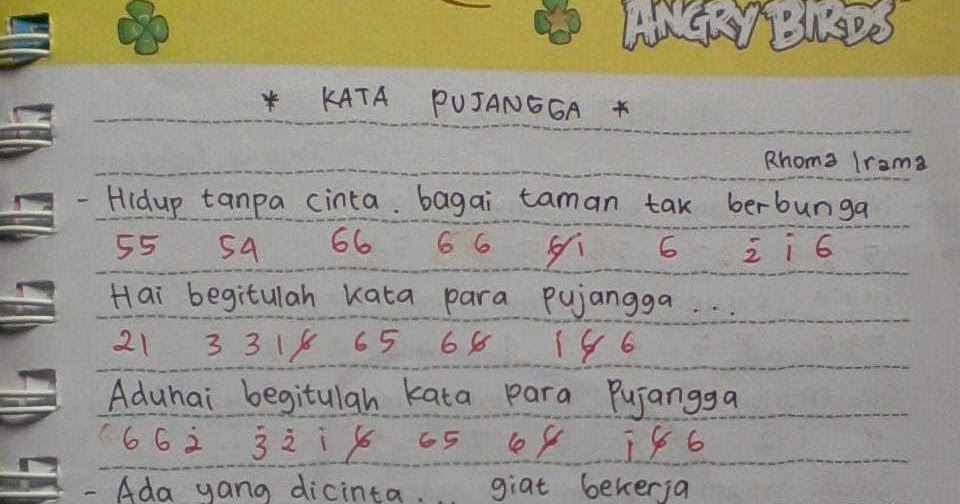 ANGRY BIRDS
* KATA PUJANGGA *
Rhoma Irama
- Hidup tanpa cinta. bagai taman tak berbunga
55 54 66 66 6̸i̇ 6 2̇ i̇ 6
Hai begitulah kata para pujangga...
21 3 3 1 6̸ 65 66̸ i̇ 6̸ 6
Aduhai begitulah kata para Pujangga
6 6 2̇ 3̇ 2̇ i̇ 6̸ 65 66̸ i̇ 6̸ 6
- Ada yang dicinta... giat bekerja